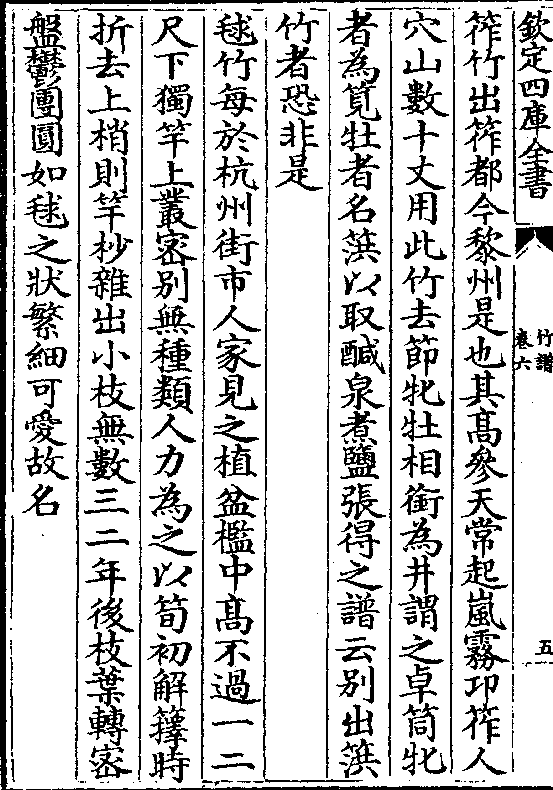 欽定四庫全書
竹譜
卷六
五
筰竹出筰都今黎州是也其髙參天常起嵐霧卭筰人
穴山數十丈用此竹去節牝牡相銜為井謂之卓筒牝
者為筧牡者名䈵以取鹹泉煮鹽張得之譜云别出䈵
竹者恐非是
毬竹毎於杭州街市人家見之植盆檻中髙不過一二
尺下獨竿上叢宻别無種類人力為之以筍初解籜時
折去上梢則竿杪雜出小枝無數三二年後枝葉轉宻
盤鬱團圓如毬之狀繁細可愛故名